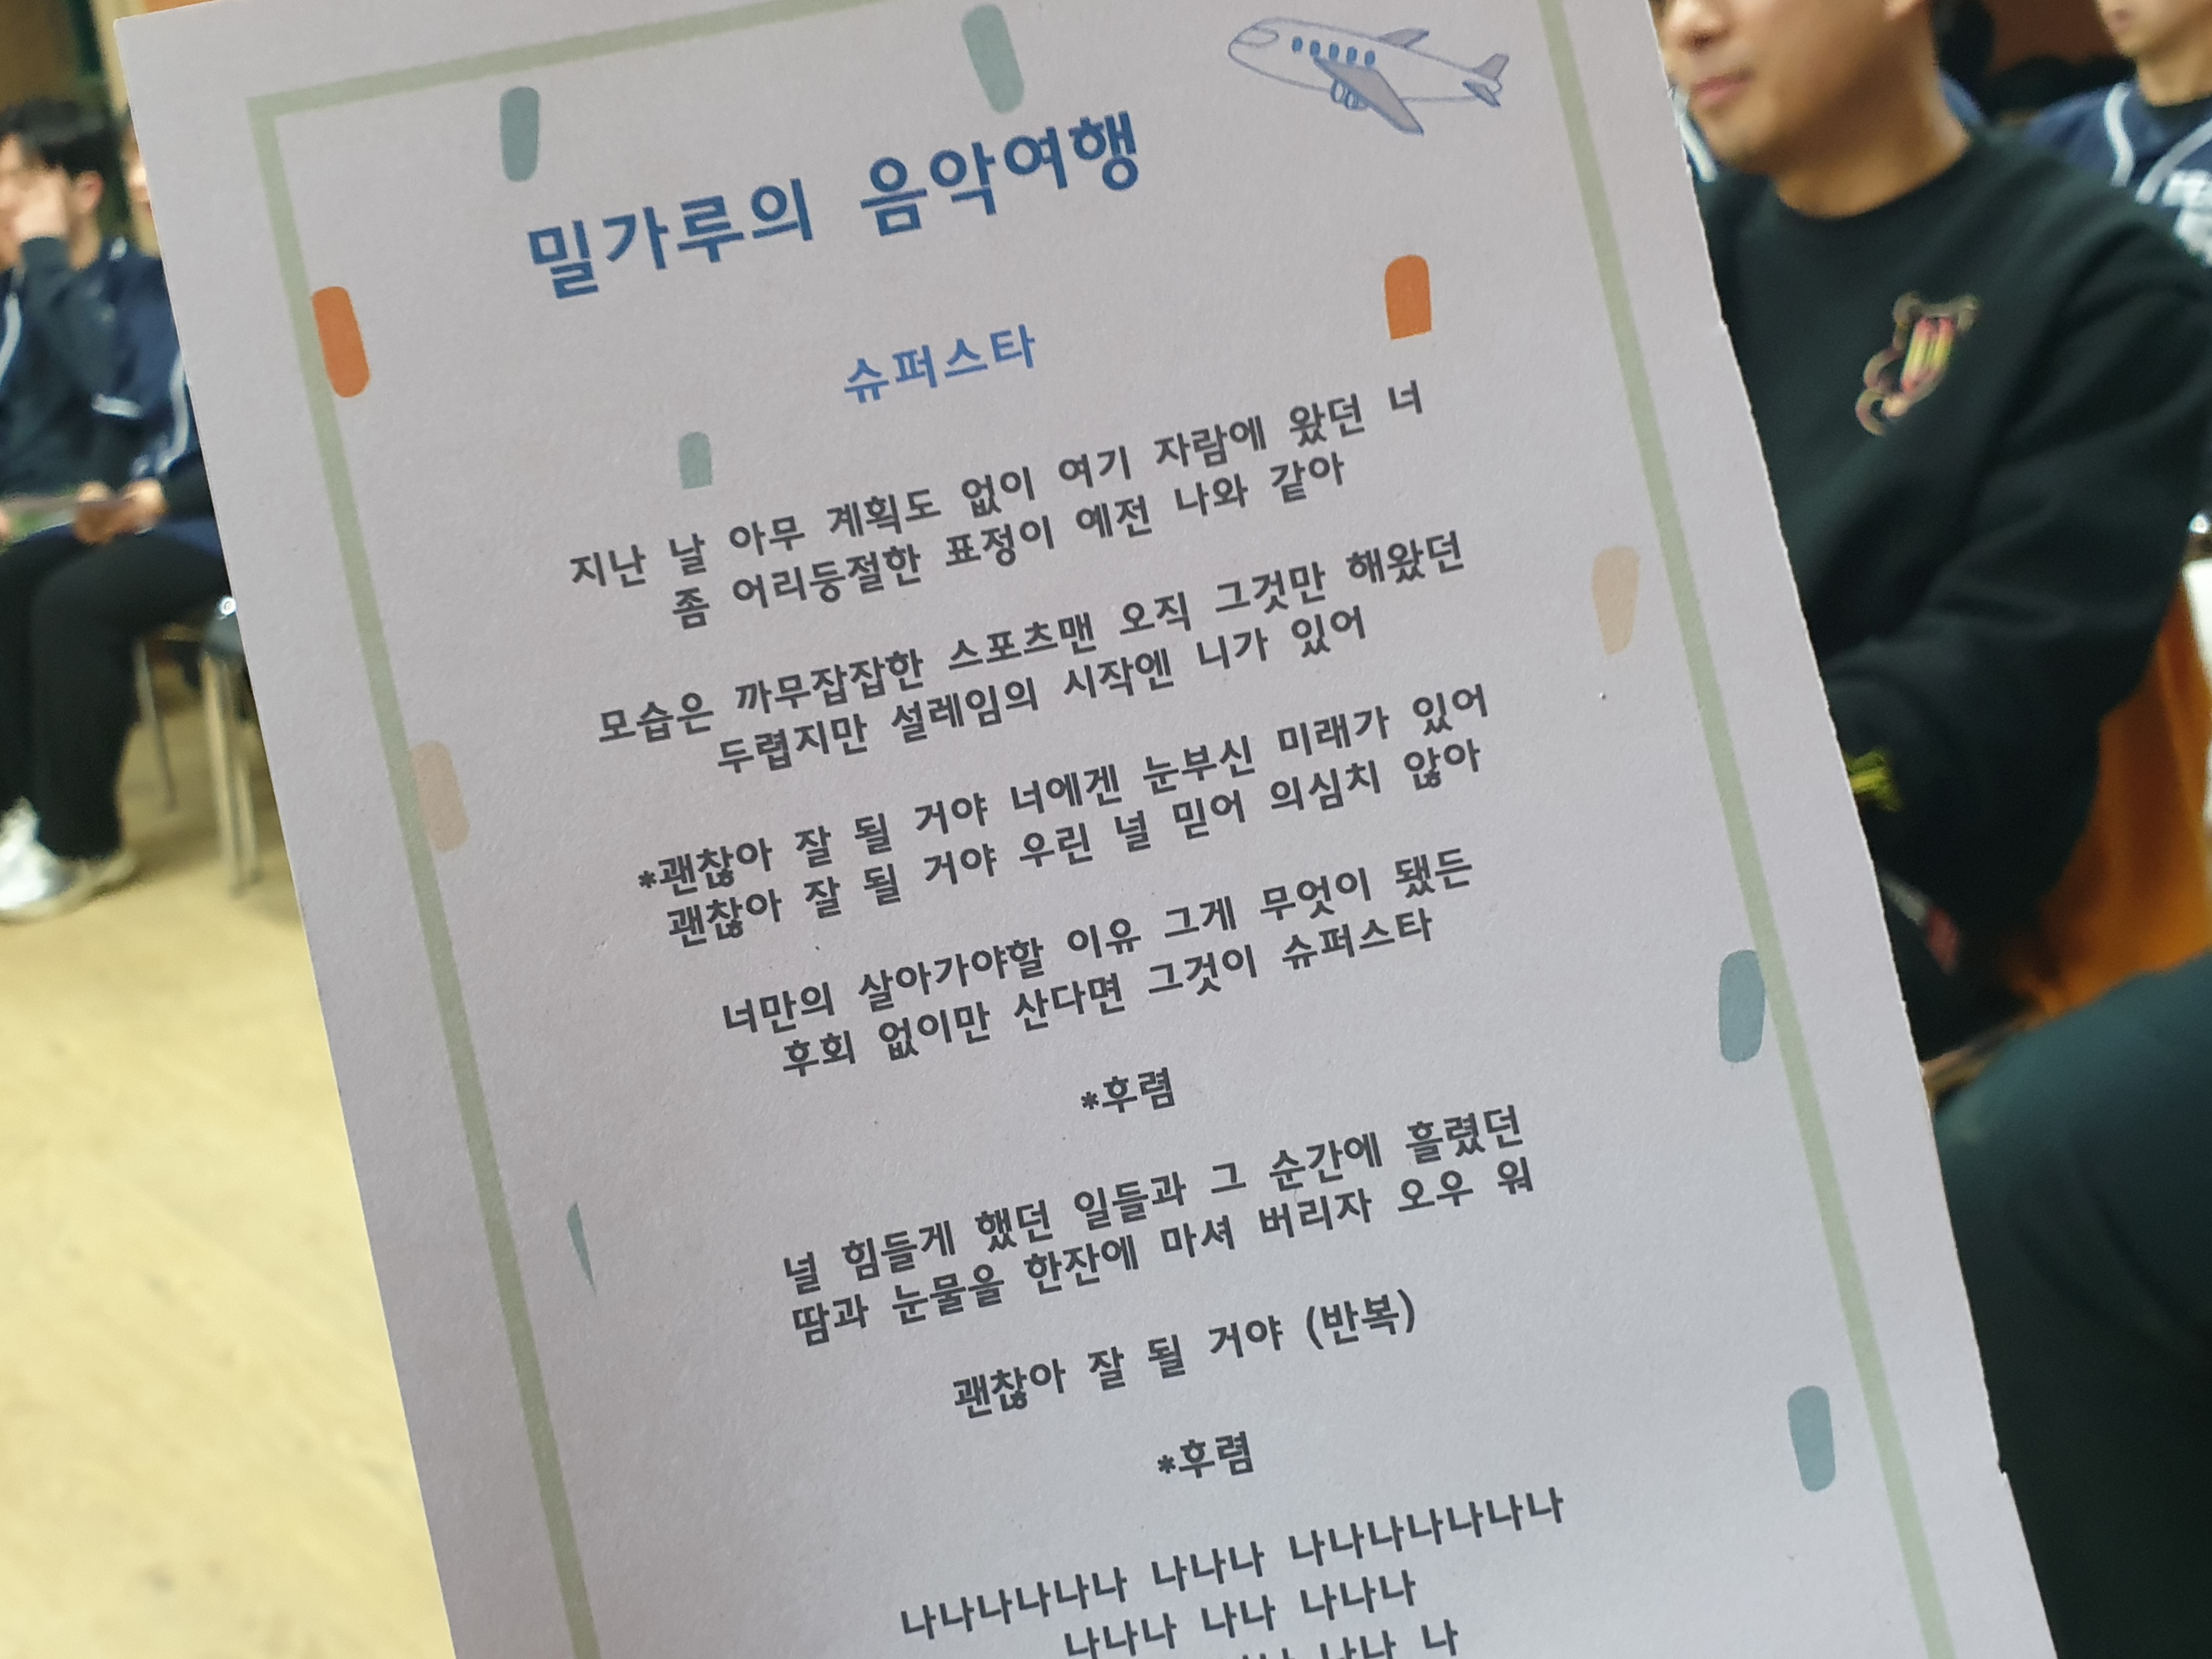 밀가루의 음악여행
슈퍼스타
지난 날 아무 계획도 없이 여기 자람에 왔던 너
좀 어리둥절한 표정이 예전 나와 같아
모습은 까무잡잡한 스포츠맨 오직 그것만 해왔던
두렵지만 설레임의 시작엔 니가 있어
*괜찮아 잘 될 거야 너에겐 눈부신 미래가 있어
괜찮아 잘 될 거야 우린 널 믿어 의심치 않아
너만의 살아가야할 이유 그게 무엇이 됐든
후회 없이만 산다면 그것이 슈퍼스타
*후렴
널 힘들게 했던 일들과 그 순간에 흘렸던
땀과 눈물을 한잔에 마셔 버리자 오우 워
괜찮아 잘 될 거야 (반복)
*후렴
나나나나나나 나나나 나나나나나나나
나나나 나나 나나나
나나 나